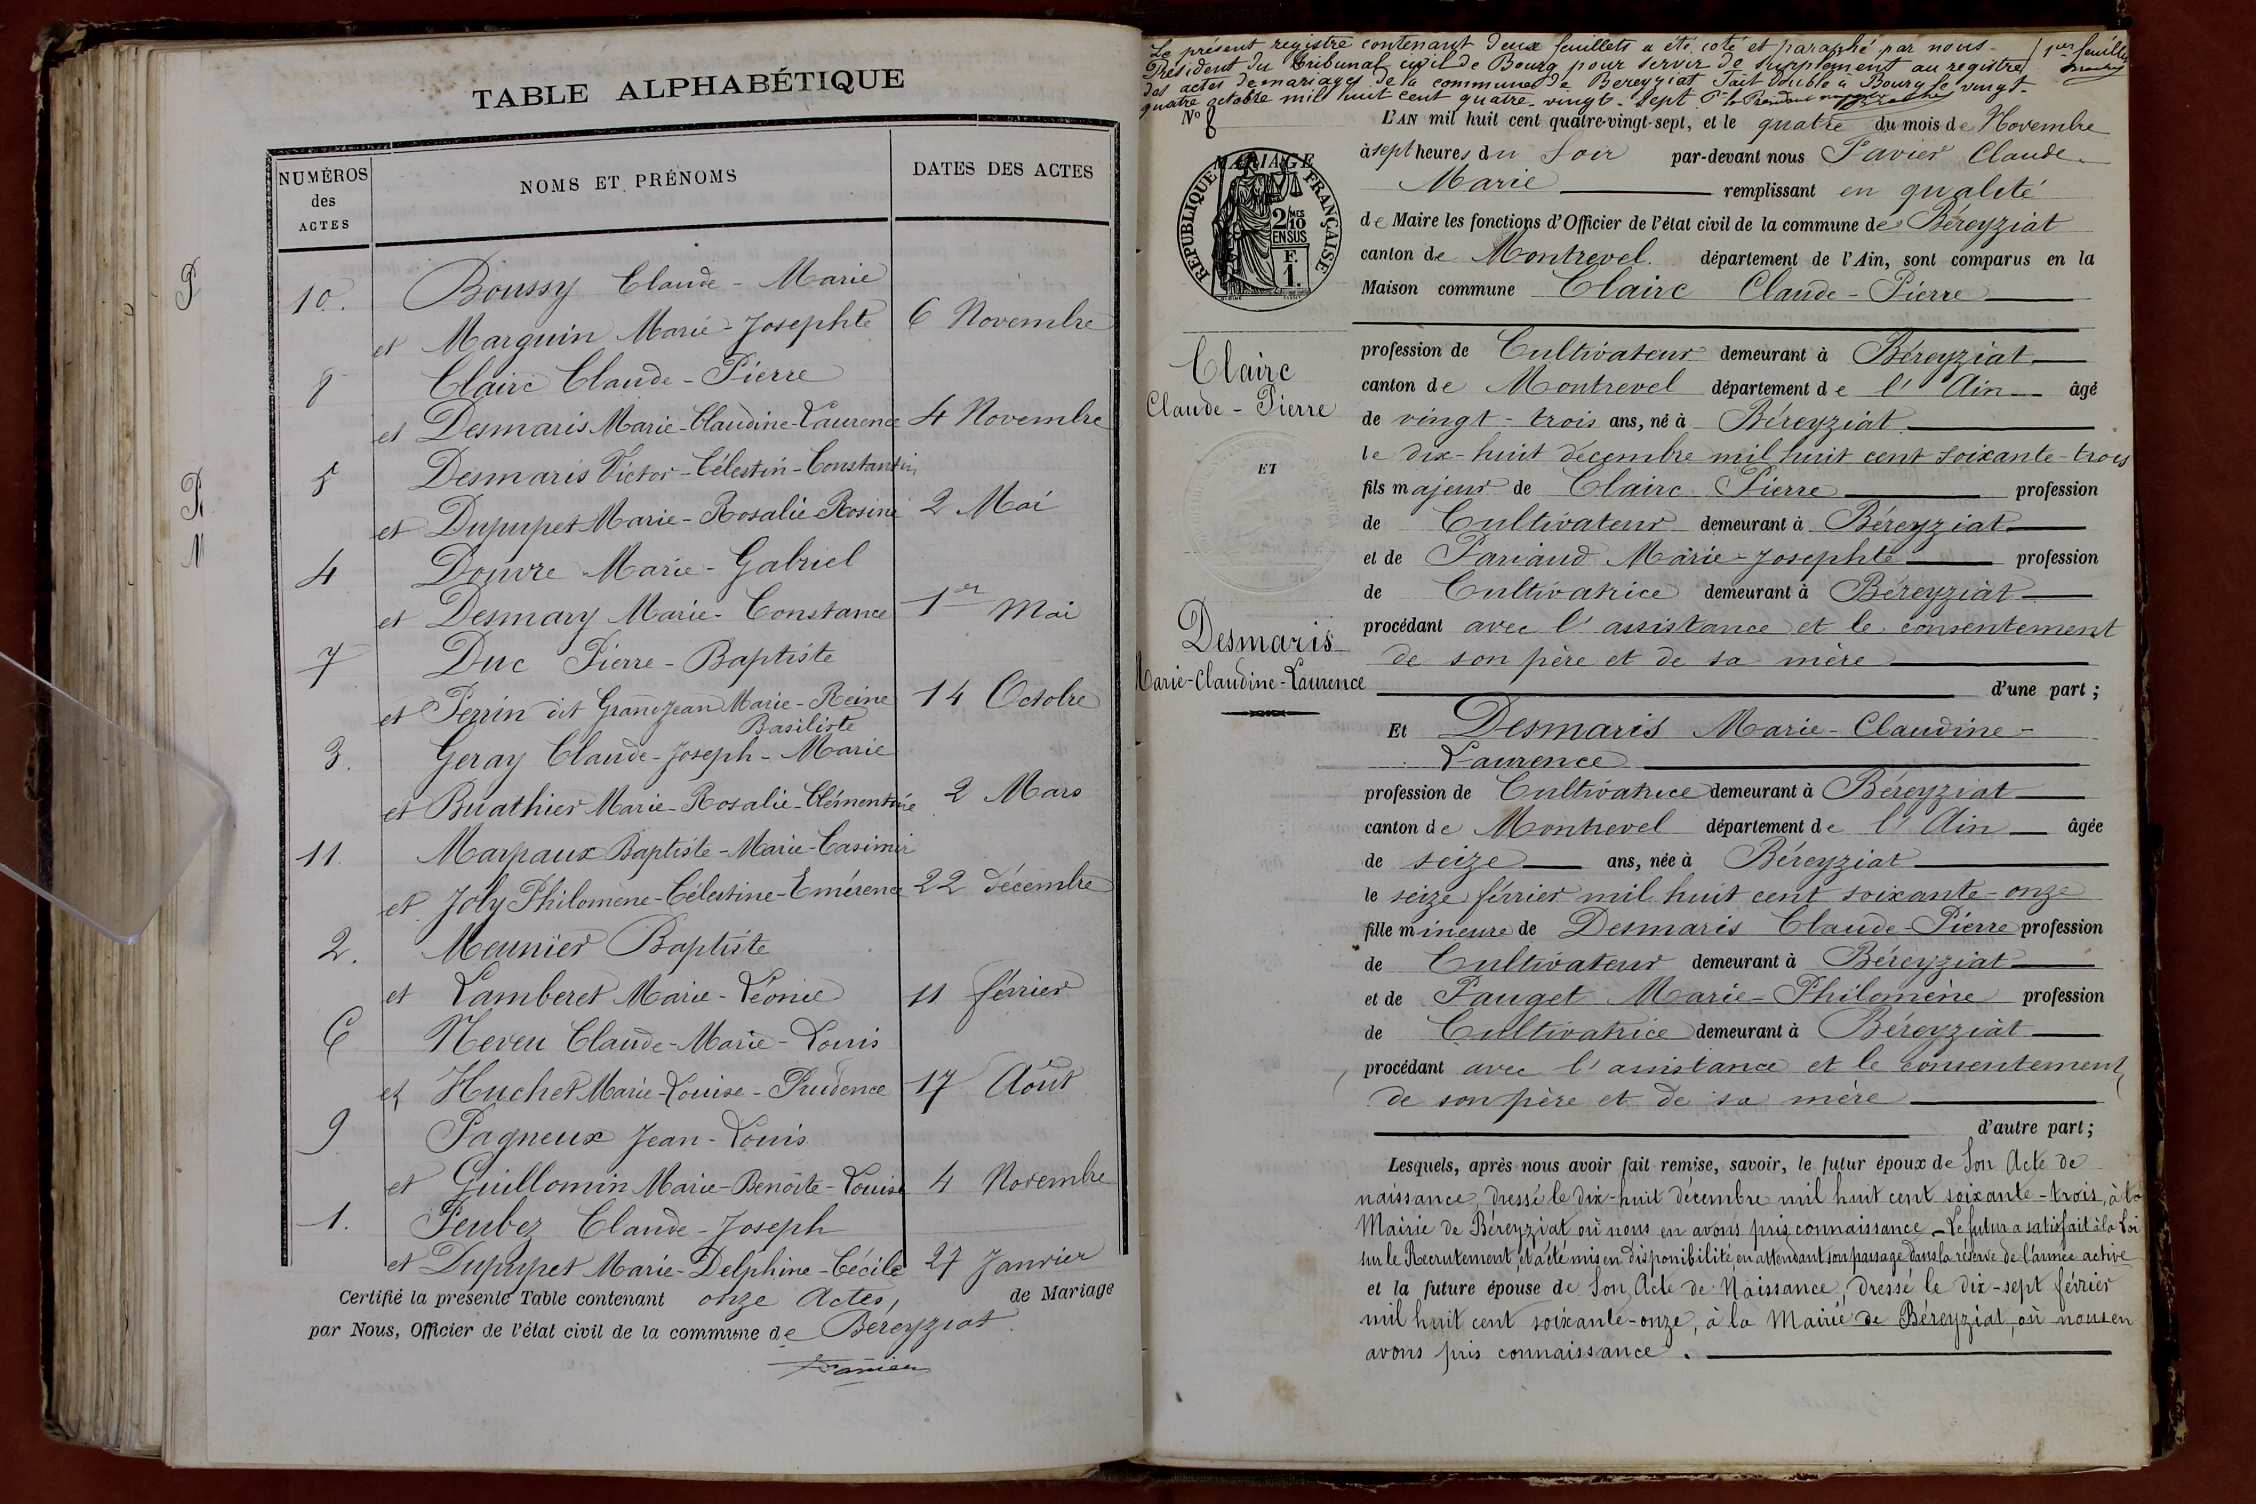 TABLE ALPHABÉTIQUE
NUMÉROS
des
ACTES
NOMS ET PRÉNOMS
DATES DES ACTES
10. Boussy Claude-Marie
et Marguin Marie-Josephte 6 Novembre
8 Clairc Claude-Pierre
et Desmaris Marie-Claudine-Laurence 4 Novembre
5 Desmaris Victor-Célestin-Constantin
et Dupupet Marie-Rosalie-Rosine 2 Mai
4 Douvre Marie-Gabriel
et Desmary Marie-Constance 1er Mai
7 Duc Pierre-Baptiste
et Perrin dit Grandjean Marie-Reine 14 Octobre
Basiliste
3. Geray Claude-Joseph-Marie
et Buathier Marie-Rosalie-Clémentine 2 Mars
11. Marpaux Baptiste-Marie-Casimir
et Joly Philomène-Célestine-Emérence 22 décembre
2. Meunier Baptiste
et Lamberet Marie-Léonie 11 février
6 Neveu Claude-Marie-Louis
et Huchet Marie-Louise-Prudence 17 Août
9 Pagneux Jean-Louis
et Guillomin Marie-Benoite-Louise 4 Novembre
1. Peubez Claude-Joseph
et Dupupet Marie-Delphine-Cécile 27 Janvier
Certifié la présente Table contenant onze Actes, de Mariage
par Nous, Officier de l'état civil de la commune de Béreyziat.
Le présent registre contenant deux feuillets a été coté et paraphé par nous
Président du Tribunal civil de Bourg pour servir de supplément au registre
des actes de mariages de la commune de Bereyziat Fait double à Bourg le vingt-
quatre octobre mil huit cent quatre-vingt-sept.
1er feuillet
No 8
MARIAGE
RÉPUBLIQUE FRANÇAISE
2/10 MES
EN SUS
F.
1.
Clairc
Claude-Pierre
ET
Desmaris
Marie-Claudine-Laurence
L'AN mil huit cent quatre-vingt-sept, et le quatre du mois de Novembre
à sept heures du Soir par-devant nous Pavier Claude-
Marie remplissant en qualité
de Maire les fonctions d'Officier de l'état civil de la commune de Béreyziat
canton de Montrevel département de l'Ain, sont comparus en la
Maison commune Clairc Claude-Pierre
profession de Cultivateur demeurant à Béreyziat
canton de Montrevel département de l'Ain âgé
de vingt-trois ans, né à Béreyziat
le dix-huit décembre mil huit cent soixante-trois
fils majeur de Clairc Pierre profession
de Cultivateur demeurant à Béreyziat
et de Pariaud Marie-Josephte profession
de Cultivatrice demeurant à Béreyziat
procédant avec l'assistance et le consentement
de son père et de sa mère
d'une part;
Et Desmaris Marie-Claudine-
Laurence
profession de Cultivatrice demeurant à Béreyziat
canton de Montrevel département de l'Ain âgée
de seize ans, née à Béreyziat
le seize février mil huit cent soixante-onze
fille mineure de Desmaris Claude-Pierre profession
de Cultivateur demeurant à Béreyziat
et de Pauget Marie-Philomène profession
de Cultivatrice demeurant à Béreyziat
procédant avec l'assistance et le consentement
de son père et de sa mère
d'autre part;
Lesquels, après nous avoir fait remise, savoir, le futur époux de Son Acte de
naissance, dressé le dix-huit décembre mil huit cent soixante-trois, à la
Mairie de Béreyziat où nous en avons pris connaissance - Le futur a satisfait à la Loi
sur le Recrutement, et a été mis en disponibilité en attendant son passage dans la réserve de l'armée active
et la future épouse de Son Acte de Naissance, dressé le dix-sept février
mil huit cent soixante-onze, à la Mairie de Béreyziat, où nous en
avons pris connaissance.